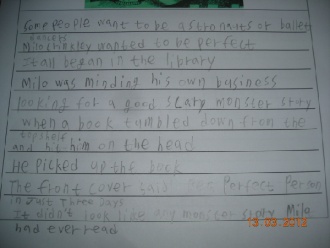 some people want to be astronauts or ballet
dancers
Milo crinkley wanted to be perfect
It all began in the library
Milo was minding his own business
looking for a good scary monster story
when a book tumbled down from the
top shelf
and hit him on the head
He picked up the book
The front cover said Be a Perfect Person
in Just Three Days
It didn't look like any monster story Milo
had ever read
13.09.2012